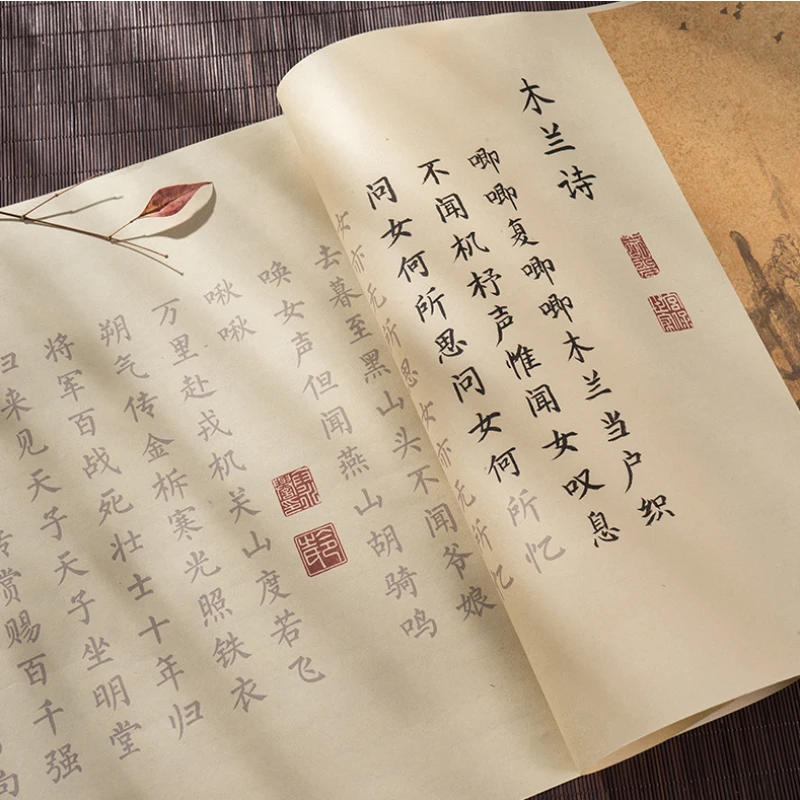 木兰诗
唧唧复唧唧木兰当户织
不闻机杼声惟闻女叹息
问女何所思问女何所忆
女亦无所思女亦无所忆
去暮至黑山头不闻爷娘
唤女声但闻燕山胡骑鸣
啾啾
万里赴戎机关山度若飞
朔气传金柝寒光照铁衣
将军百战死壮士十年归
归来见天子天子坐明堂
赏赐百千强